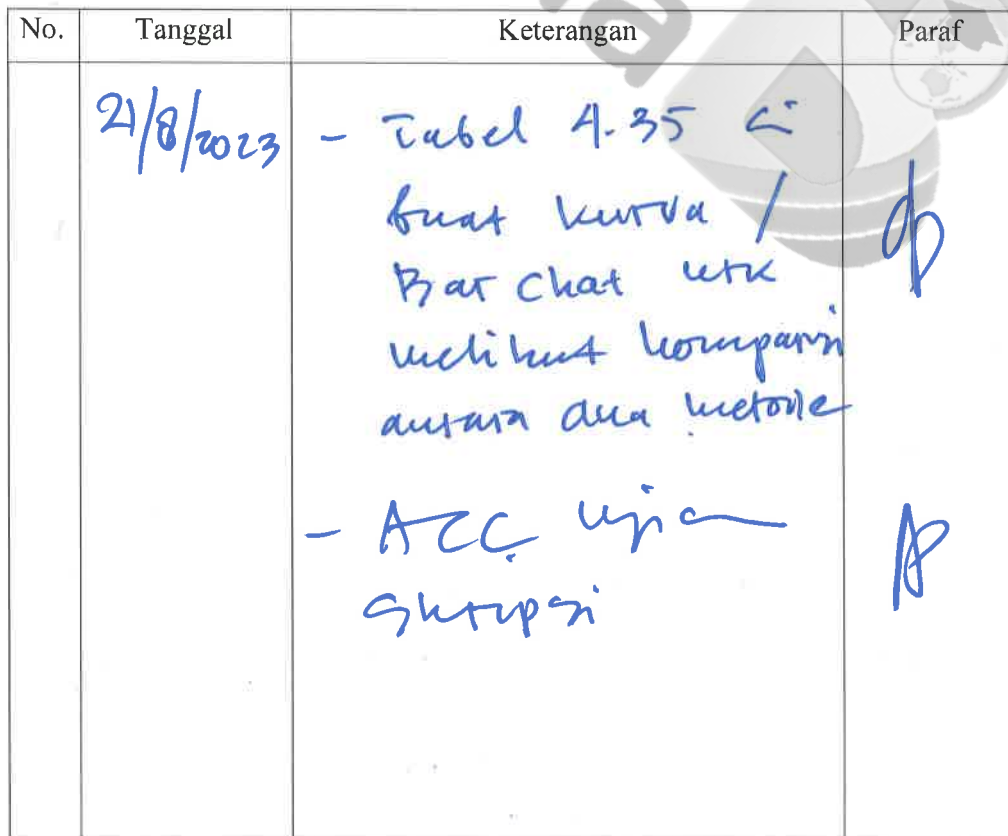 No. Tanggal Keterangan Paraf
21/8/2023 - Tabel 4.35
buat kurva /
Bar Chat utk
melihat komparisi
antara dua metode
- ACC ujian
Skripsi